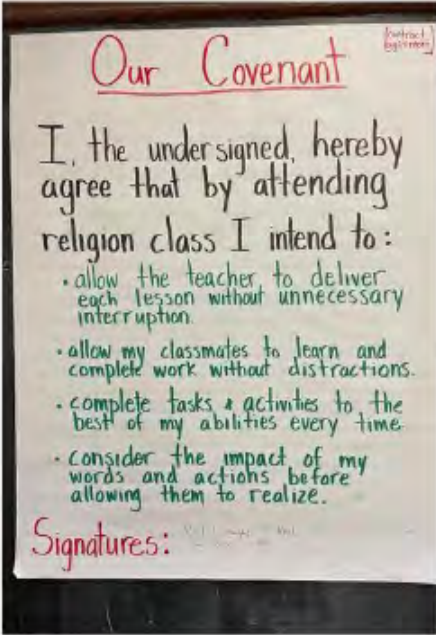 Our Covenant
I, the undersigned, hereby
agree that by attending
religion class I intend to:
• allow the teacher to deliver
each lesson without unnecessary
interruption.
• allow my classmates to learn and
complete work without distractions.
• complete tasks & activities to the
best of my abilities every time.
• consider the impact of my
words and actions before
allowing them to realize.
Signatures: